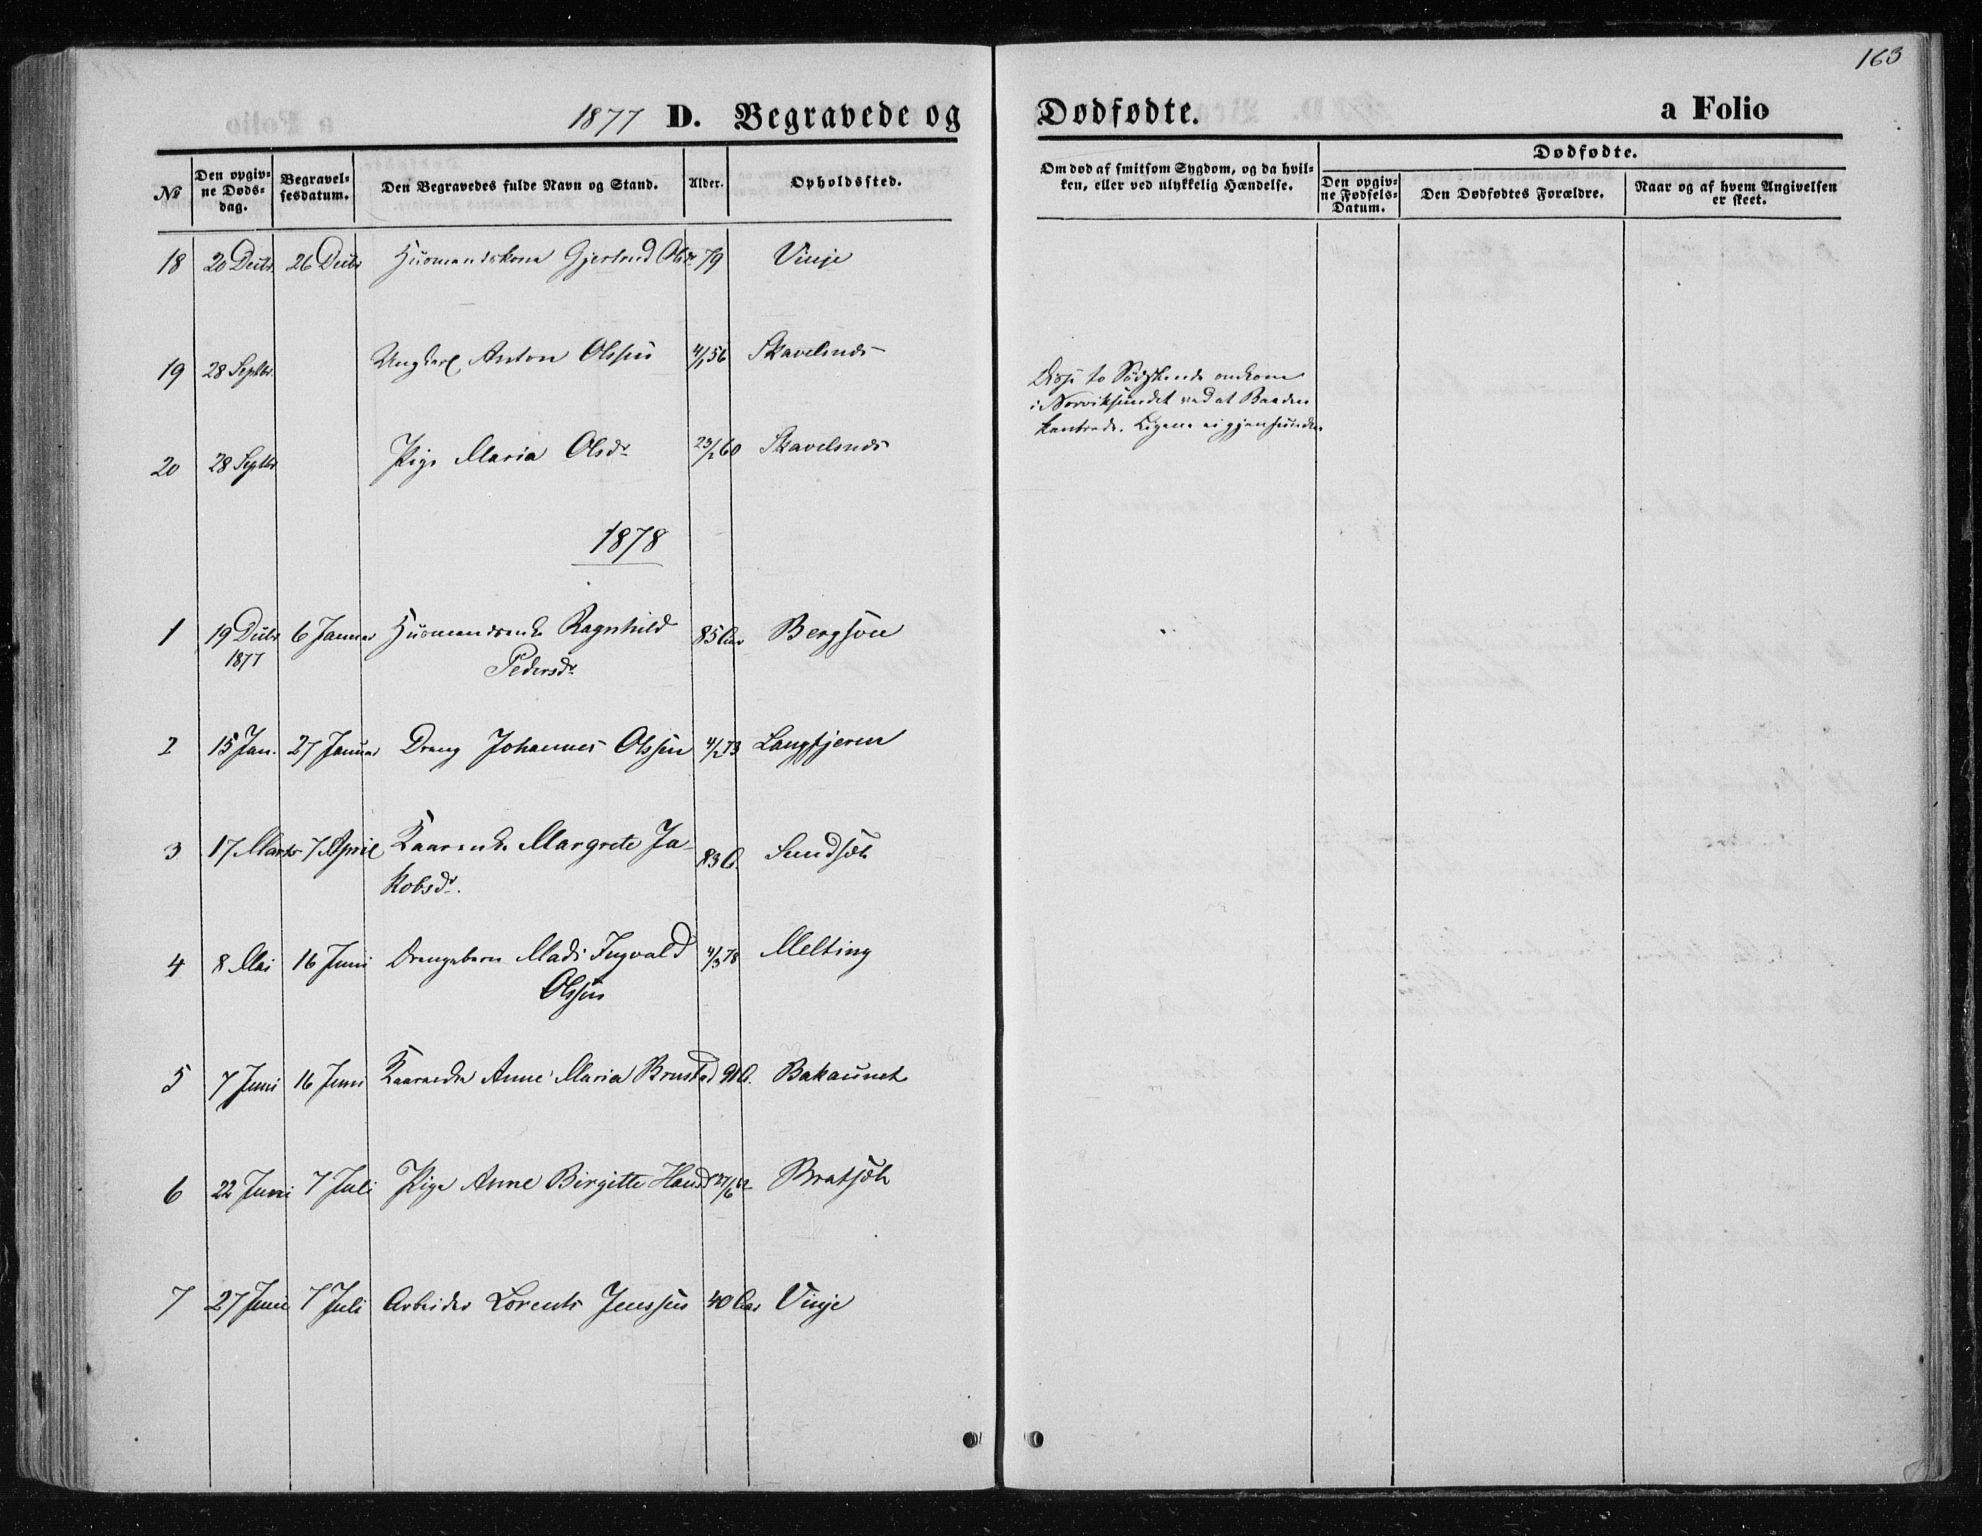 163
1877 D. Begravede og Dødfødte. a Folio
No
Den opgivne Døds-dag.
Begravelsesdatum.
Den Begravedes fulde Navn og Stand.
Alder.
Opholdssted.
Om død af smitsom Sygdom, og da hvilken, eller ved ulykkelig Hændelse.
Dødfødte.
Den opgivne Fødsels-Datum.
Den Dødfødtes Forældre.
Naar og af hvem Angivelsen er skeet.
18 20 Decbr 26 Decbr Huusmandskone Gjertrud Olsdr 79 Vinje
19 28 Septbr. Ungkarl Anton Olssen 4/1 56 Skavelsnds
Disse to Södskende omkom
i Norviksundet ved at Baaden
kantrede. Ligene ei gjenfundne.
20 28 Septbr Pige Maria Olsdr 23/2 60 Skavelsnds
1878
1 19 Decbr 1877 6 Januar Huusmandsenke Ragnhild 85 Aar Bergsöen
Pedersdr
2 15 Jan. 27 Januar Dreng Johannes Olssen 4/2 73 Langtjeren
3 17 Marts 7 April Kaarenke Margrete Ja- 83 A. Sundsæth
kobsdr.
4 8 Mai 16 Juni Drengebarn Mads Ingvald 4/3 78 Melting
Olssen
5 7 Juni 16 Juni Kaarenke Anne Maria Brustad 91 A. Bakaunet
6 22 Juni 7 Juli Pige Anne Birgitte Hansdr 27/6 62 Bratsæth
7 27 Juni 7 Juli Arbeider Lorents Jenssen 40 Aar Vinje